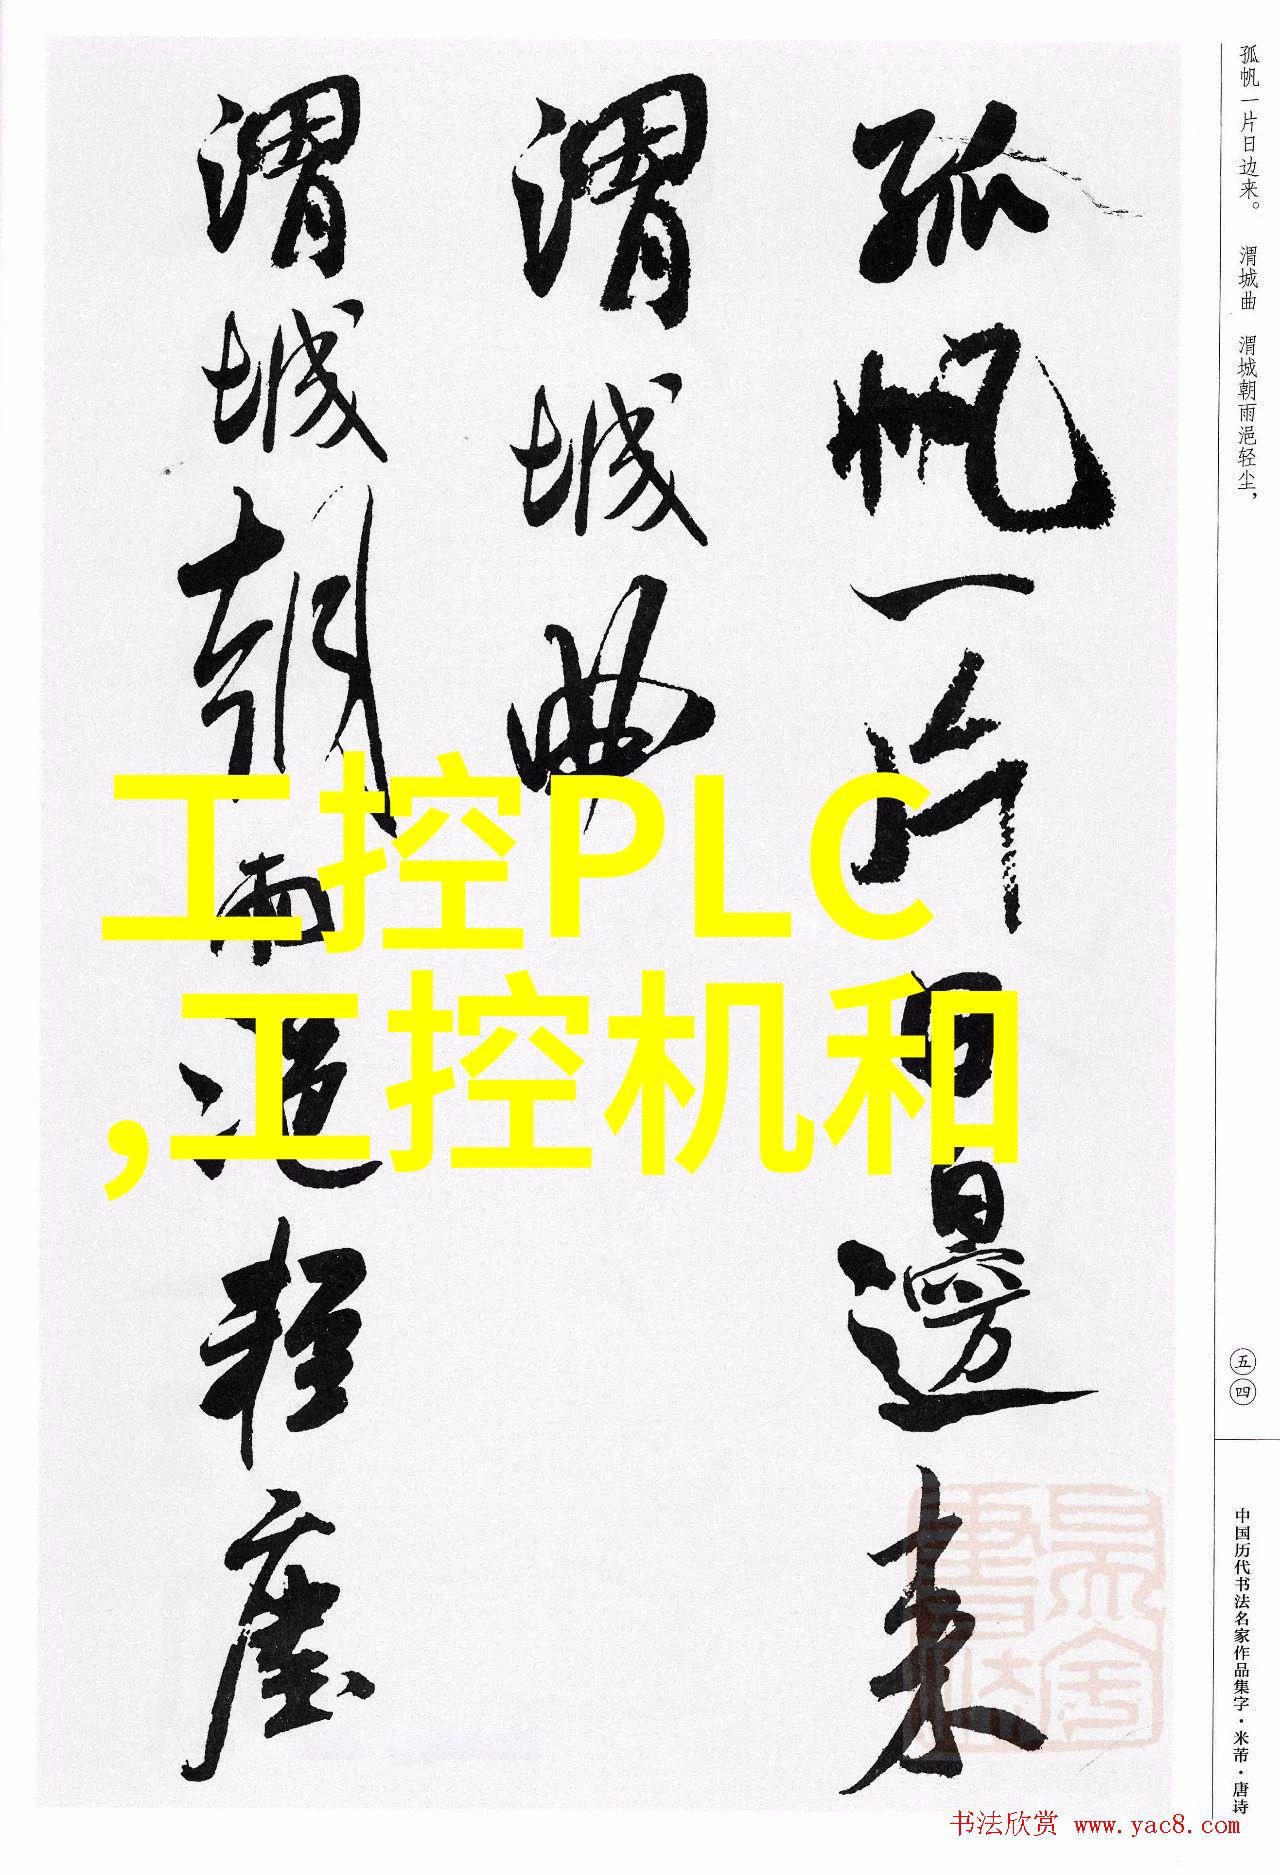 孤帆一片日边来。 渭城曲 渭城朝雨浥轻尘，
孤帆一片日邊来
渭城曲
渭城朝雨浥轻塵
工控PLC
,工控机和
五四
中国历代书法名家作品集字·米芾·唐诗
书法欣赏 www.yac8.com